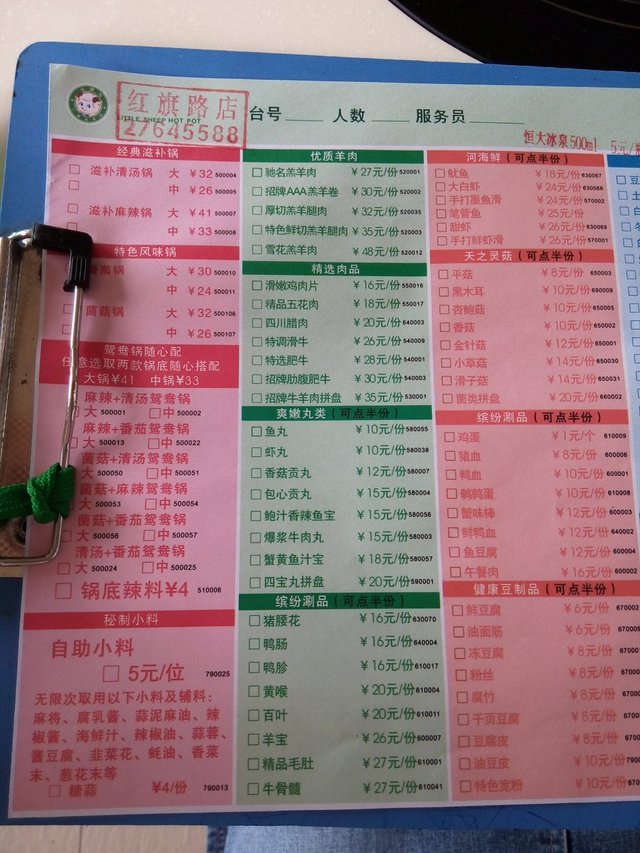 红旗路店
LITTLE SHEEP HOT POT
27645588
台号 人数 服务员
恒大冰泉500ml 5元/
经典滋补锅
滋补清汤锅 大 ¥32 500004
中 ¥26 500005
滋补麻辣锅 大 ¥41 500007
中 ¥33 500008
特色风味锅
番茄锅 大 ¥30 500010
中 ¥24 500011
菌菇锅 大 ¥32 500106
中 ¥26 500107
鸳鸯锅随心配
任意选取两款锅底随心搭配
大锅¥41 中锅¥33
麻辣+清汤鸳鸯锅
大 500001 中 500002
麻辣+番茄鸳鸯锅
大 500013 中 500022
菌菇+清汤鸳鸯锅
大 500050 中 500051
菌菇+麻辣鸳鸯锅
大 500053 中 500054
菌菇+番茄鸳鸯锅
大 500056 中 500057
清汤+番茄鸳鸯锅
大 500024 中 500025
锅底辣料¥4 510006
秘制小料
自助小料
5元/位 790025
无限次取用以下小料及辅料:
麻将、腐乳酱、蒜泥麻油、辣
椒酱、海鲜汁、辣椒油、蒜蓉、
酱豆腐、韭菜花、蚝油、香菜
末、葱花末等
糖蒜 ¥4/份 790013
优质羊肉
驰名羔羊肉 ¥27元/份 520001
招牌AAA羔羊卷 ¥30元/份 520002
厚切羔羊腿肉 ¥32元/份 520035
特色鲜切羔羊腿肉 ¥35元/份 520003
雪花羔羊肉 ¥48元/份 520012
精选肉品
滑嫩鸡肉片 ¥16元/份 550016
精品五花肉 ¥18元/份 550017
四川腊肉 ¥20元/份 640003
特调滑牛 ¥26元/份 540009
特选肥牛 ¥28元/份 540001
招牌肋腹肥牛 ¥30元/份 540003
招牌牛羊肉拼盘 ¥35元/份 530001
爽嫩丸类(可点半份)
鱼丸 ¥10元/份 580055
虾丸 ¥10元/份 580038
香菇贡丸 ¥12元/份 580007
包心贡丸 ¥15元/份 580004
鲍汁香辣鱼宝 ¥15元/份 580056
爆浆牛肉丸 ¥15元/份 580057
蟹黄鱼汁宝 ¥18元/份 580058
四宝丸拼盘 ¥20元/份 590001
缤纷涮品(可点半份)
猪腰花 ¥16元/份 630070
鸭肠 ¥16元/份 640004
鸭胗 ¥16元/份 610017
黄喉 ¥20元/份 610004
百叶 ¥20元/份 610011
羊宝 ¥26元/份 600007
精品毛肚 ¥27元/份 610001
牛骨髓 ¥27元/份 610041
河海鲜(可点半份)
鱿鱼 ¥18元/份 630067
大白虾 ¥24元/份 630068
手打墨鱼滑 ¥24元/份 570002
笔管鱼 ¥25元/份
甜虾 ¥26元/份 630069
手打鲜虾滑 ¥26元/份 570001
天之灵菇(可点半份)
平菇 ¥8元/份 650003
黑木耳 ¥10元/份 690009
杏鲍菇 ¥10元/份 650005
香菇 ¥10元/份 650002
金针菇 ¥12元/份 650001
小草菇 ¥14元/份 650030
滑子菇 ¥14元/份 650030
菌类拼盘 ¥20元/份 660002
缤纷涮品(可点半份)
鸡蛋 ¥1元/个 610009
猪血 ¥8元/份 600006
鸭血 ¥10元/份 600001
鹌鹑蛋 ¥10元/份 610008
蟹味棒 ¥12元/份 600003
鲜鸭血 ¥12元/份 640002
鱼豆腐 ¥12元/份 600004
午餐肉 ¥16元/份 600002
健康豆制品(可点半份)
鲜豆腐 ¥6元/份 670002
油面筋 ¥6元/份 670009
冻豆腐 ¥8元/份 670001
粉丝 ¥8元/份
腐竹 ¥8元/份
千页豆腐 ¥8元/份
豆腐皮 ¥8元/份
油豆皮 ¥10元/份
特色宽粉 ¥10元/份